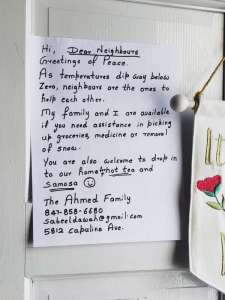 Hi, Dear Neighbours
Greetings of Peace.
As temperatures dip way below
Zero, neighbours are the ones to
help each other.
My family and I are available
if you need assistance in picking
up groceries, medicine or removal
of snow.
You are also welcome to drop in
to our home, hot tea and
Samosa
The Ahmed Family
847-858-6680
sabeeldawah@gmail.com
5812 Capulina Ave.